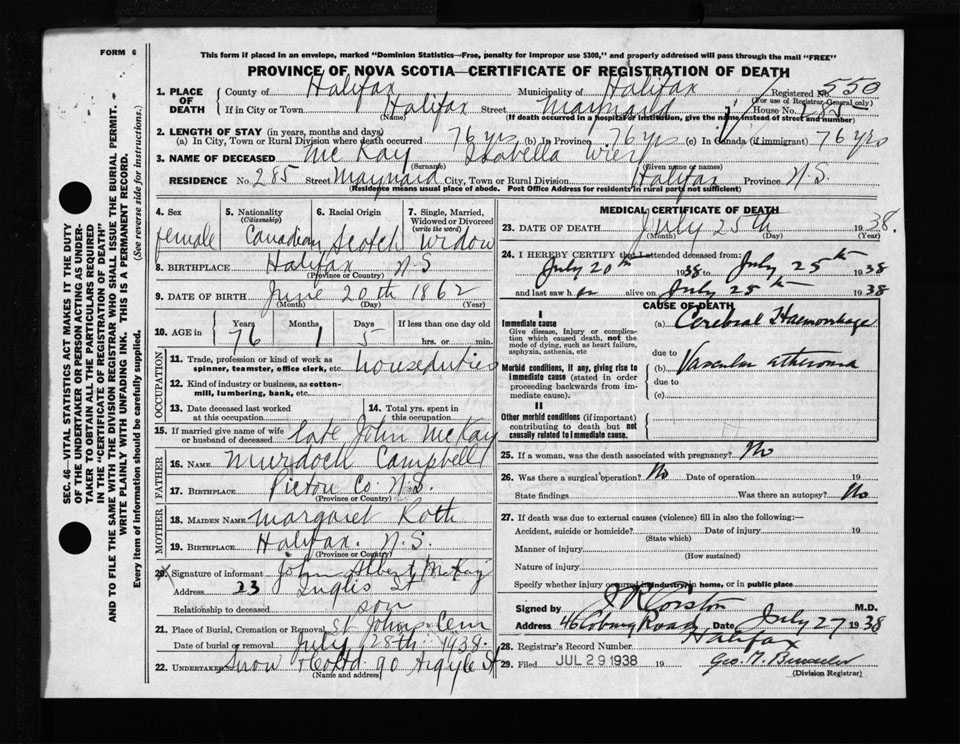 FORM 6
This form if placed in an envelope, marked "Dominion Statistics—Free, penalty for improper use $300," and properly addressed will pass through the mail "FREE"
PROVINCE OF NOVA SCOTIA—CERTIFICATE OF REGISTRATION OF DEATH
1. PLACE OF DEATH County of Halifax Municipality of Halifax Registered No. 550
(For use of Registrar-General only)
If in City or Town Halifax Street Maynard House No. 285
(Name) (If death occurred in a hospital or institution, give the name instead of street and number)
2. LENGTH OF STAY (in years, months and days)
(a) In City, Town or Rural Division where death occurred 76 yrs (b) In Province 76 yrs (c) In Canada (if immigrant) 76 yrs
3. NAME OF DECEASED McKay Isabella Wier
(Surname) (Given name or names)
RESIDENCE No. 285 Street Maynard City, Town or Rural Division Halifax Province N.S.
(Residence means usual place of abode. Post Office Address for residents in rural parts not sufficient)
4. Sex 5. Nationality 6. Racial Origin 7. Single, Married,
(Citizenship) Widowed or Divorced
(write the word)
female Canadian Scotch Widow
8. BIRTHPLACE Halifax N S
(Province or Country)
9. DATE OF BIRTH June 20th 1862
(Month) (Day) (Year)
10. AGE in Years Months Days If less than one day old
76 1 5 hrs. or min.
OCCUPATION
11. Trade, profession or kind of work as
spinner, teamster, office clerk, etc. houseduties
12. Kind of industry or business, as cotton-
mill, lumbering, bank, etc.
13. Date deceased last worked 14. Total yrs. spent in
at this occupation this occupation
15. If married give name of wife
or husband of deceased late John McKay
FATHER
16. NAME Murdoch Campbell
17. BIRTHPLACE Pictou Co N.S.
(Province or Country)
MOTHER
18. MAIDEN NAME Margaret Roth
19. BIRTHPLACE Halifax. N.S.
(Province or Country)
20. Signature of informant John Albert McKay
Address 23 Inglis St
Relationship to deceased son
21. Place of Burial, Cremation or Removal St Johns Cem
Date of burial or removal July 28th 1938
22. UNDERTAKER Snow & Co Ltd 90 Argyle St
(Name and address)
MEDICAL CERTIFICATE OF DEATH
23. DATE OF DEATH July 25th 1938.
(Month) (Day) (Year)
24. I HEREBY CERTIFY that I attended deceased from:
July 20th 1938 to July 25th 1938
and last saw her alive on July 25th 1938
CAUSE OF DEATH
I
Immediate cause (a) Cerebral Haemorrhage
Give disease, injury or complica-
tion which caused death, not the
mode of dying, such as heart failure,
asphyxia, asthenia, etc due to
Morbid conditions, if any, giving rise to (b) Vascular atheroma
immediate cause (stated in order due to
proceeding backwards from im- (c)
mediate cause).
II
Other morbid conditions (if important)
contributing to death but not
causally related to immediate cause.
25. If a woman, was the death associated with pregnancy? No
26. Was there a surgical operation? No Date of operation 19
State findings Was there an autopsy? No
27. If death was due to external causes (violence) fill in also the following:—
Accident, suicide or homicide? Date of injury 19
(State which)
Manner of injury
(How sustained)
Nature of injury
Specify whether injury occurred in industry, in home, or in public place
Signed by Corston M.D.
Address 46 Coburg Road Date July 27 1938
Halifax
28. Registrar's Record Number
29. Filed JUL 29 1938 19
(Division Registrar)
SEC. 46 - VITAL STATISTICS ACT MAKES IT THE DUTY
OF THE UNDERTAKER OR PERSON ACTING AS UNDER-
TAKER TO OBTAIN ALL THE PARTICULARS REQUIRED
IN THE "CERTIFICATE OF REGISTRATION OF DEATH"
AND TO FILE THE SAME WITH THE DIVISION REGISTRAR WHO SHALL ISSUE THE BURIAL PERMIT.
WRITE PLAINLY WITH UNFADING INK. THIS IS A PERMANENT RECORD.
Every item of information should be carefully supplied. (See reverse side for instructions.)